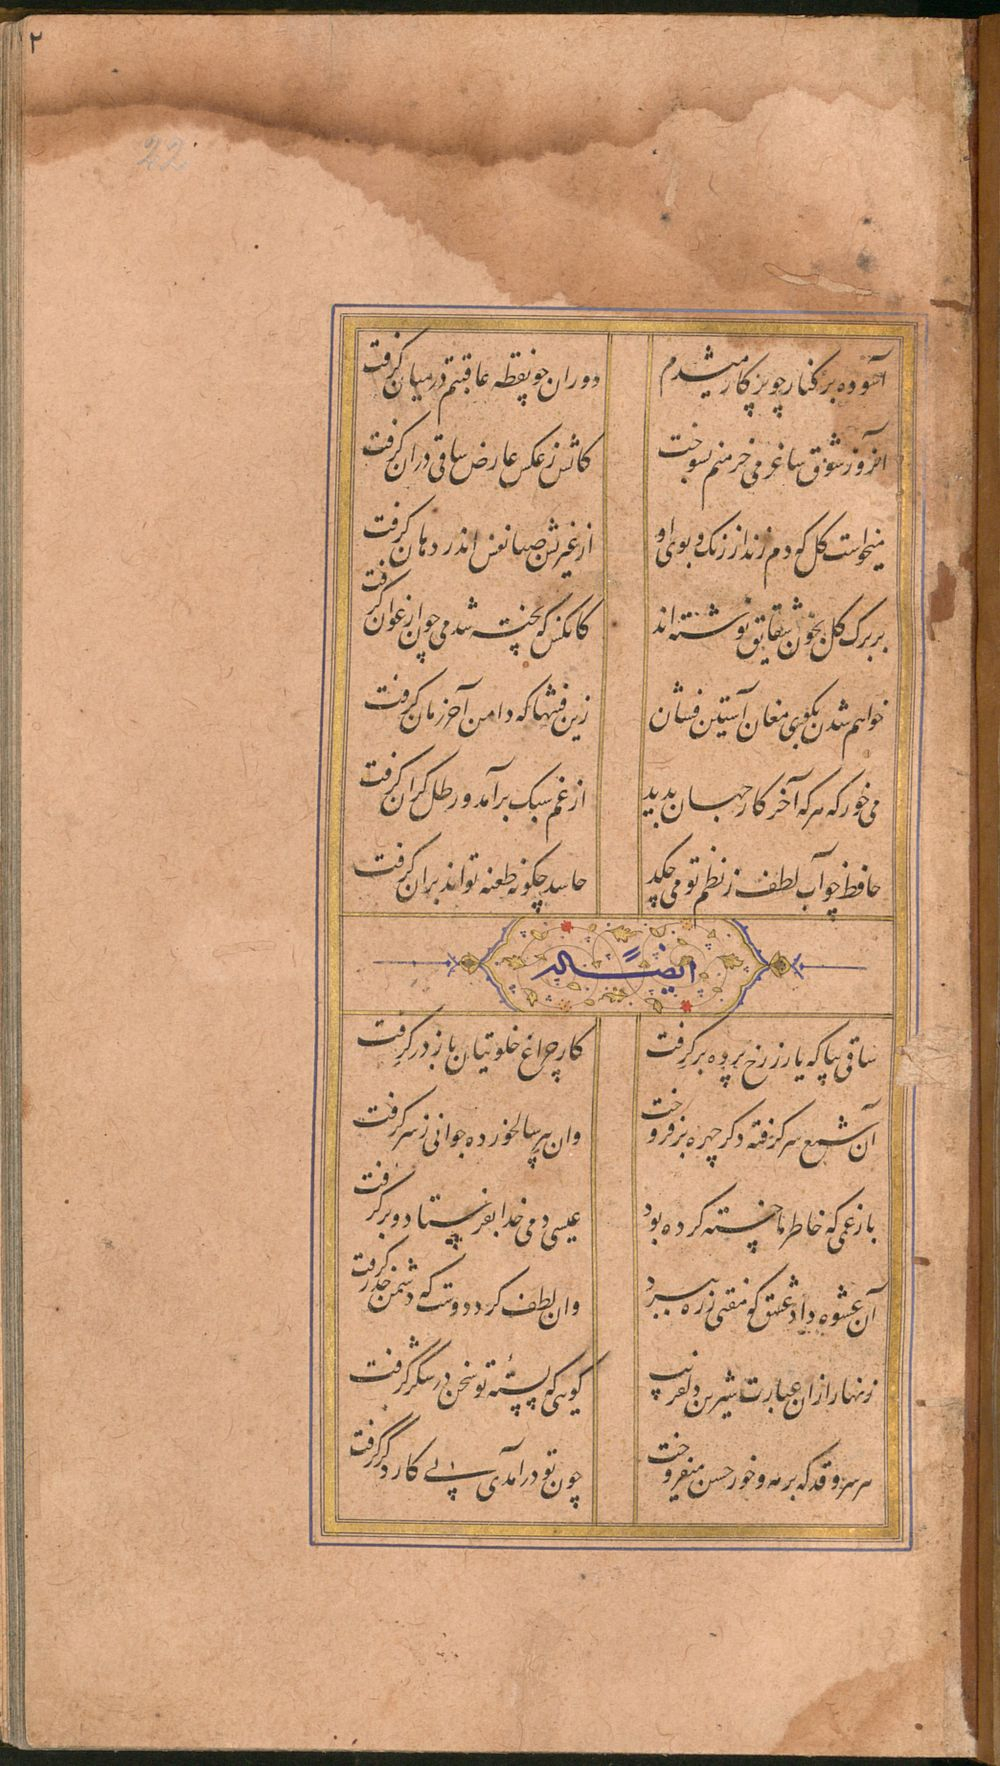 ۲
22
آسوده بر کنار چو پرکار میشدم دوران چو نقطه عاقبتم در میان گرفت
آنروز شوق ساغر می خرمنم بسوخت کاتش ز عکس عارض ساقی در آن گرفت
میخواست گل که دم زند از رنک و بوی او از غیرتش صبا نفس اندر دهان گرفت
بر برک گل بخون شقایق نوشته‌اند کانکس که پخته شد می چون ارغوان گرفت
خواهم شدن بکوی مغان آستین فشان زین فتنها که دامن آخر زمان گرفت
می خور که هر که آخر کار جهان بدید از غم سبک برآمد و رطل گران گرفت
حافظ چو آب لطف ز نظم تو می چکد حاسد چکونه طعنه تواند بر آن گرفت
ایضاً له
ساقی بیا که یار ز رخ پرده بر گرفت کار چراغ خلوتیان باز در گرفت
آن شمع سر گرفته دگر چهره بر فروخت وان پیر سالخورده جوانی ز سر گرفت
بار غمی که خاطر ما خسته کرده بود عیسی دمی خدا بفرستاد و بر گرفت
آن عشوه داد عشق که مفتی ز ره ببرد وان لطف کرد دوست که دشمن حذر گرفت
زنهار از آن عبارت شیرین دلفریب گویی که پسته تو سخن در شکر گرفت
هر سرو قد که بر مه و خور حسن میفروخت چون تو درآمدی پی کار دگر گرفت